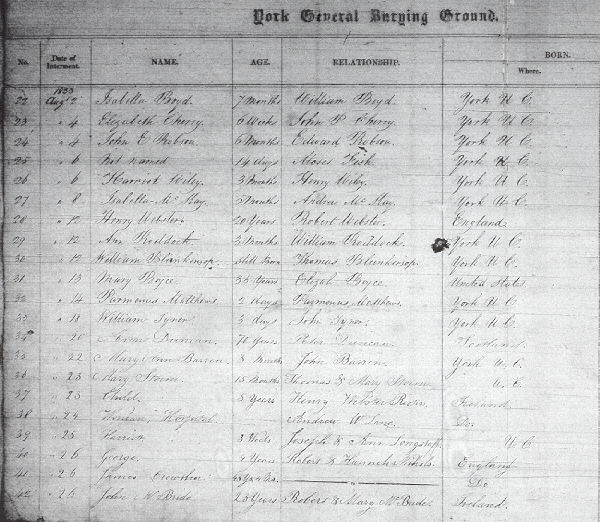 York General Burying Ground.
No. Date of Interment. NAME. AGE. RELATIONSHIP. BORN. Where.
1833
22 Augt 2 Isabella Boyd. 7 Months William Boyd. York U C.
23 " 4 Elizabeth Cherry. 6 Weeks John P Cherry. York U C.
24 " 4 John E Robson 6 Months Edward Robson. York U C.
25 " 6 Not named 14 days Moses Fish York U C.
26 " 6 Harriot Wiley. 3 Months Henry Wiley. York U C.
27 " 8 Isabella Mc Kay. Months Andrew Mc Kay. York U C.
28 " 12 Henry Webster. 20 Years Robert Webster. England.
29 " 12 Ann Roddock. 3 Months William Roddocks. York U C.
30 " 12 William Blenkensop. still born Thomas Blenkensop. York U. C.
31 " 13 Mary Boyce 35 Years Elijah Boyce United States.
32 " 14 Parmenus Matthews. 2 days Parmenus Matthews. York U C.
33 " 18 William Tyner 3 days John Tyner. York U C.
34 " 20 Duncan. 70 Years Peter Duncan. Scotland.
35 " 22 Mary Ann Barren. 8 Months John Barren. York U. C.
36 " 23 Mary Storm. 15 Months Thomas & Mary Storm U. C.
37 " 23 Child. 5 Years Henry Webster Ireland.
38 " 24 Hospital. Andrew W Lane. Do.
39 " 25 3 Weeks Joseph & Ann Longstaff. U C
40 " 26 George. Years Robert & Hannah England
41 " 26 James Crowther. Do.
42 " 26 John McBride 23 Years Robert & Mary McBride. Ireland.